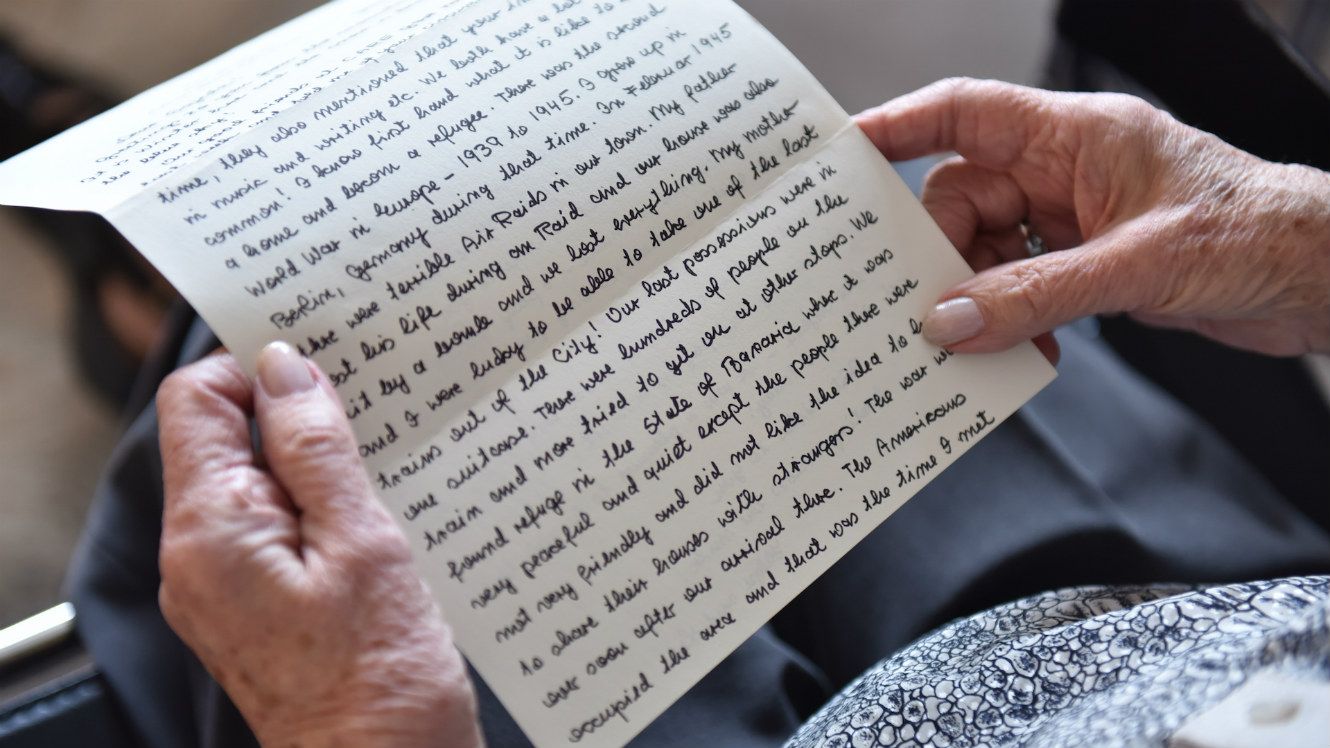 time, they also mentioned that your
in music and writing etc. We both have a lot
common! I know first hand what it is like to
a home and becom a refugee. There was the second
World War in Europe – 1939 to 1945. I grew up in
Berlin, Germany during that time. In Februar 1945
there were terrible Air Raids in our town. My father
lost his life during an Raid and our house was also
hit by a bombe and we lost everything. My mother
and I were lucky to be able to take one of the last
trains out of the City! Our last possessions were in
one suitcase. There were hundreds of people on the
train and more tried to get on at other stops. We
found refuge in the State of Bavaria where it was
very peaceful and quiet except the people there were
not very friendly and did not like the idea to
to share their houses with strangers! The war
over soon after our arrival there. The Americans
occupied the area and that was the time I met